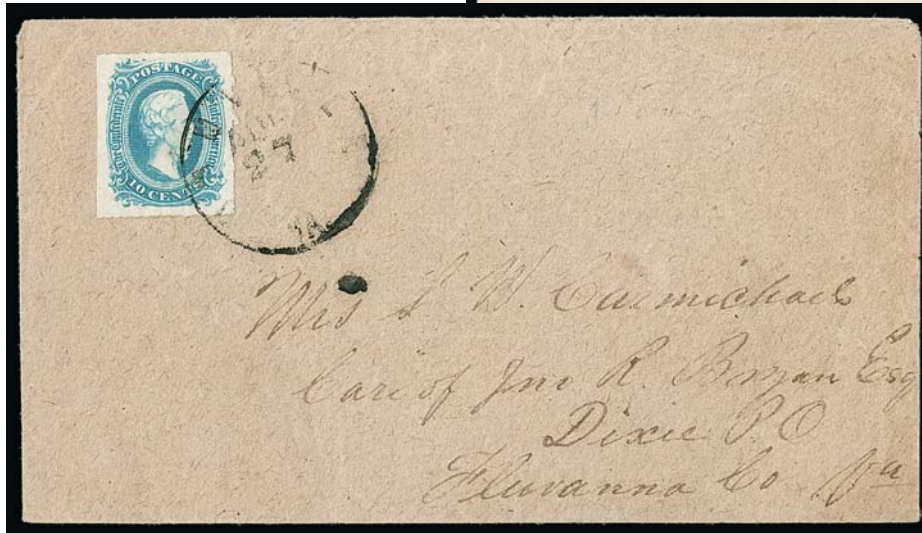 POSTAGE
The Confederate States of America
10 CENTS
27
VA
Mrs W. Carmichael
Care of Jno R. Bryan Esq
Dixie P.O
Fluvanna Co Va